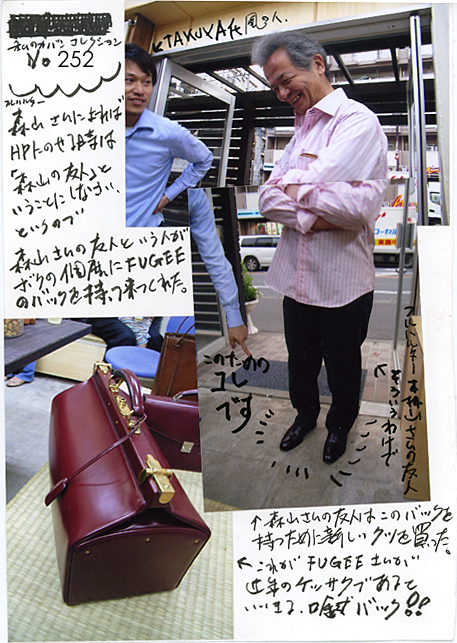 私のカバンコレクション
No 252
←TAKUYA氏風の人。
森山さんによれば
HPにのせる時は
「森山の友人」と
いうことにしなさい、
というので
森山さんの友人という人が
ボクの個展にFUGEE
のバッグを持って来てくれた。
このための
コレ
です
そういうわけで
森山さんの友人
↑森山さんの友人はこのバッグを
持つために新しいクツを買った。
←これがFUGEEさんが
近年のケッサクであると
いいきる、バック!!